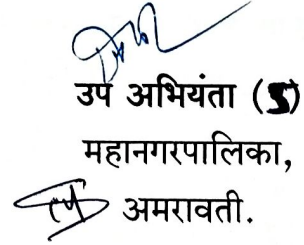 उप अभियंता (5)
महानगरपालिका,
अमरावती.